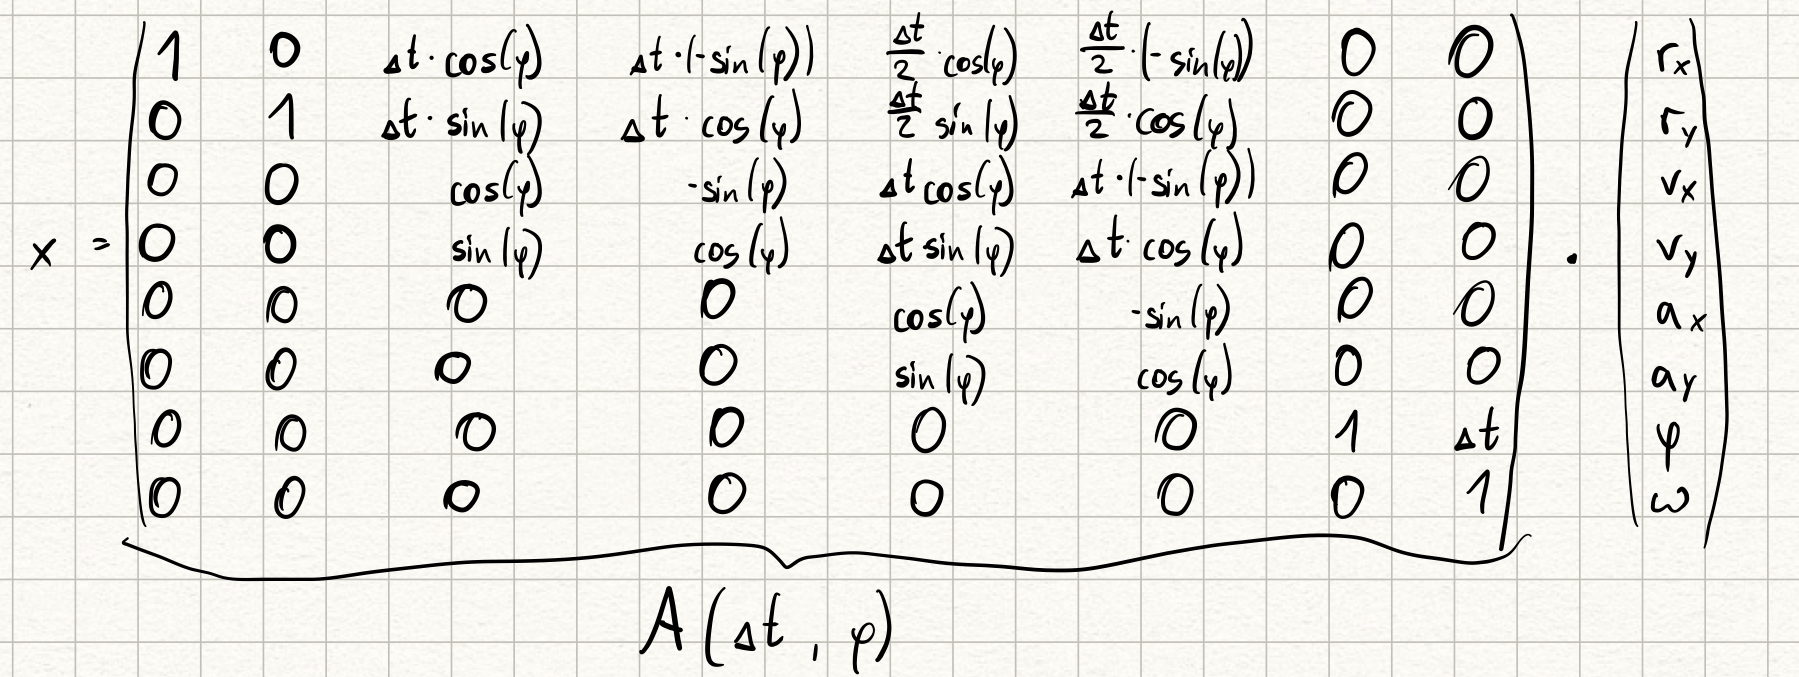 1 0 Δt · cos(φ) Δt · (-sin(φ)) Δt/2 · cos(φ) Δt/2 · (-sin(φ)) 0 0 r_x
0 1 Δt · sin(φ) Δt · cos(φ) Δt/2 sin(φ) Δt/2 · cos(φ) 0 0 r_y
0 0 cos(φ) -sin(φ) Δt cos(φ) Δt · (-sin(φ)) 0 0 v_x
x = 0 0 sin(φ) cos(φ) Δt sin(φ) Δt · cos(φ) 0 0 · v_y
0 0 0 0 cos(φ) -sin(φ) 0 0 a_x
0 0 0 0 sin(φ) cos(φ) 0 0 a_y
0 0 0 0 0 0 1 Δt φ
0 0 0 0 0 0 0 1 ω
A(Δt, φ)